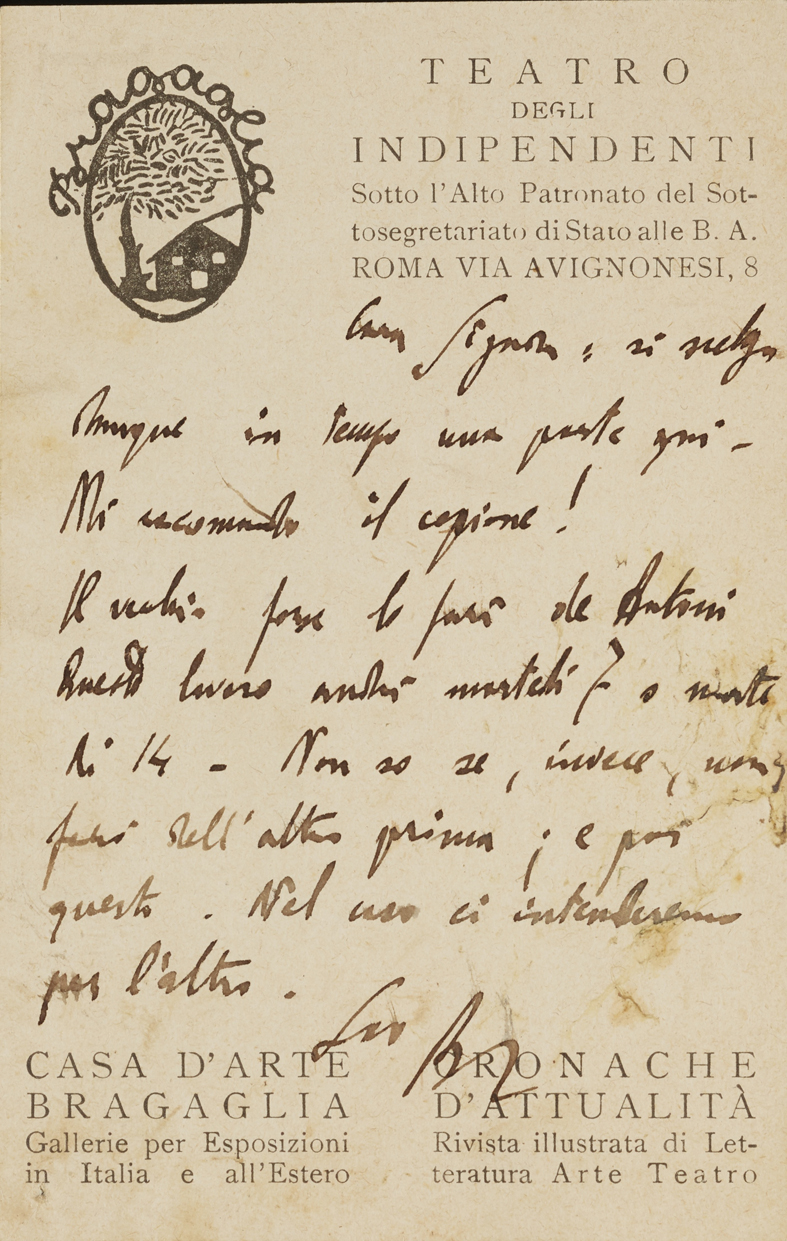 Bragaglia
TEATRO
DEGLI
INDIPENDENTI
Sotto l'Alto Patronato del Sot-
tosegretariato di Stato alle B. A.
ROMA VIA AVIGNONESI, 8
Cara Signora, si scelga
dunque in tempo una parte qui –
Mi raccomando il copione!
Il vecchio forse lo farà de Antoni
Questo lavoro andrà martedì 7 o marte
dì 14 – Non so se, invece, non
farò dell'altro prima; e poi
questo. Nel caso ci intenderemo
per l'altro.
Suo
CASA D'ARTE
BRAGAGLIA
Gallerie per Esposizioni
in Italia e all'Estero
CRONACHE
D'ATTUALITÀ
Rivista illustrata di Let-
teratura Arte Teatro